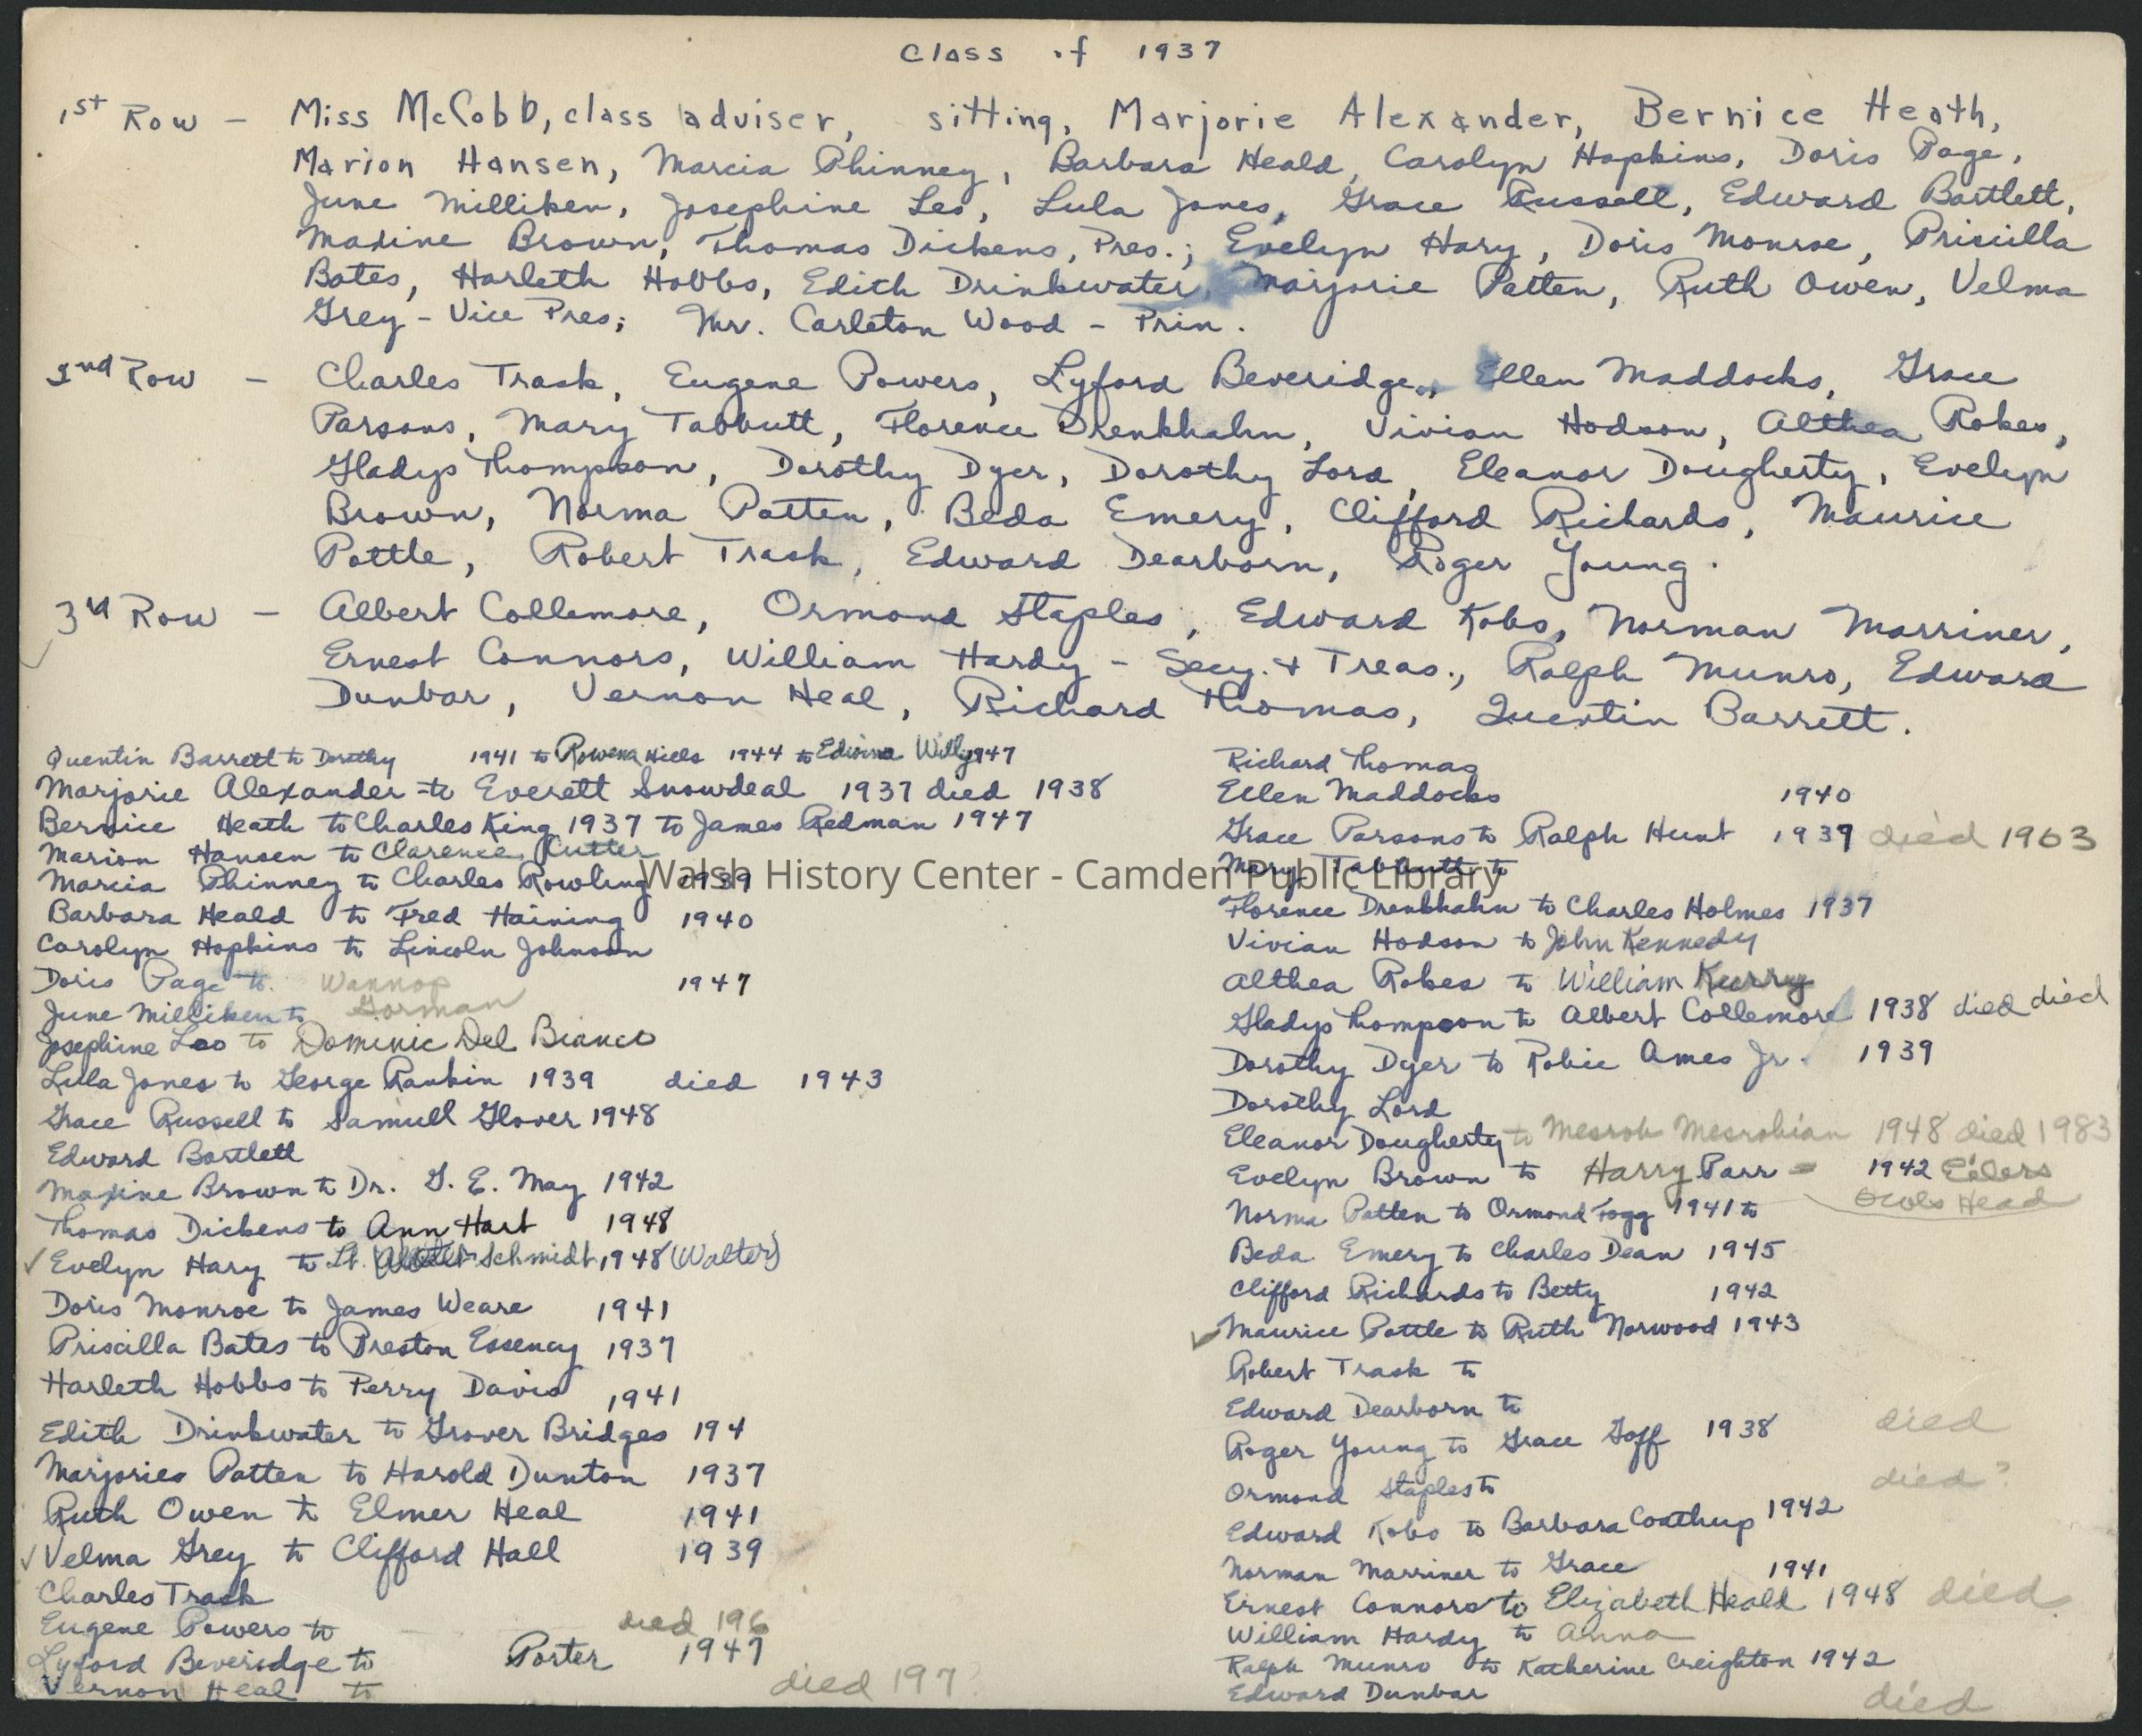 Class of 1937
1st Row - Miss McCobb, class adviser, sitting, Marjorie Alexander, Bernice Heath,
Marion Hansen, Marcia Phinney, Barbara Heald, Carolyn Hopkins, Doris Page,
June Milliken, Josephine Leo, Lula Jones, Grace Russell, Edward Bartlett,
Maxine Brown, Thomas Dickens, Pres.; Evelyn Hary, Doris Monroe, Priscilla
Bates, Harleth Hobbs, Edith Drinkwater, Marjorie Patten, Ruth Owen, Velma
Grey - Vice Pres; Mr. Carleton Wood - Prin.
2nd Row - Charles Trask, Eugene Powers, Lyford Beveridge, Ellen Maddocks, Grace
Parsons, Mary Tabbutt, Florence Drenkhahn, Vivian Hodson, Althea Rokes,
Gladys Thompson, Dorothy Dyer, Dorothy Lord, Eleanor Dougherty, Evelyn
Brown, Norma Patten, Beda Emery, Clifford Richards, Maurice
Pottle, Robert Trask, Edward Dearborn, Roger Young.
3rd Row - Albert Collemore, Ormond Staples, Edward Kobs, Norman Marriner,
Ernest Connors, William Hardy - Secy. & Treas., Ralph Munro, Edward
Dunbar, Vernon Heal, Richard Thomas, Quentin Barrett.
Quentin Barrett to Dorothy 1941 to Rowena Hills 1944 to Edwina Willy 1947
Marjorie Alexander to Everett Snowdeal 1937 died 1938
Bernice Heath to Charles King 1937 to James Redman 1947
Marion Hansen to Clarence Cutter
Marcia Phinney to Charles Rowling 1939
Barbara Heald to Fred Haining 1940
Carolyn Hopkins to Lincoln Johnson
Doris Page to Wannop 1947
June Milliken to Gorman
Josephine Leo to Dominic Del Bianco
Lula Jones to George Rankin 1939 died 1943
Grace Russell to Samuel Glover 1948
Edward Bartlett
Maxine Brown to Dr. G. E. May 1942
Thomas Dickens to Ann Hart 1948
✓ Evelyn Hary to Lt. Schmidt 1948 (Walter)
Doris Monroe to James Weare 1941
Priscilla Bates to Preston Essency 1937
Harleth Hobbs to Perry Davis 1941
Edith Drinkwater to Grover Bridges 194
Marjories Patten to Harold Dunton 1937
Ruth Owen to Elmer Heal 1941
✓ Velma Grey to Clifford Hall 1939
Charles Trask
Eugene Powers to died 196
Lyford Beveridge to Porter 1947
Vernon Heal to died 197?
Richard Thomas
Ellen Maddocks 1940
Grace Parsons to Ralph Hunt 1939 died 1963
Mary Tabbutt to
Florence Drenkhahn to Charles Holmes 1937
Vivian Hodson to John Kennedy
Althea Rokes to William Kurry
Gladys Thompson to Albert Collemore 1938 died died
Dorothy Dyer to Robie Ames Jr. 1939
Dorothy Lord
Eleanor Dougherty to Mesrob Mesrobian 1948 died 1983
Evelyn Brown to Harry Parr = 1942 Eilers
Owls Head
Norma Patten to Ormond Fogg 1941 to
Beda Emery to Charles Dean 1945
Clifford Richards to Betty 1942
✓ Maurice Pottle to Ruth Norwood 1943
Robert Trask to
Edward Dearborn to
Roger Young to Grace Goff 1938 died
Ormond Staples to died?
Edward Kobs to Barbara Coathup 1942
Norman Marriner to Grace 1941
Ernest Connors to Elizabeth Heald 1948 died
William Hardy to Anna
Ralph Munro to Katherine Creighton 1942
Edward Dunbar died
Walsh History Center - Camden Public Library